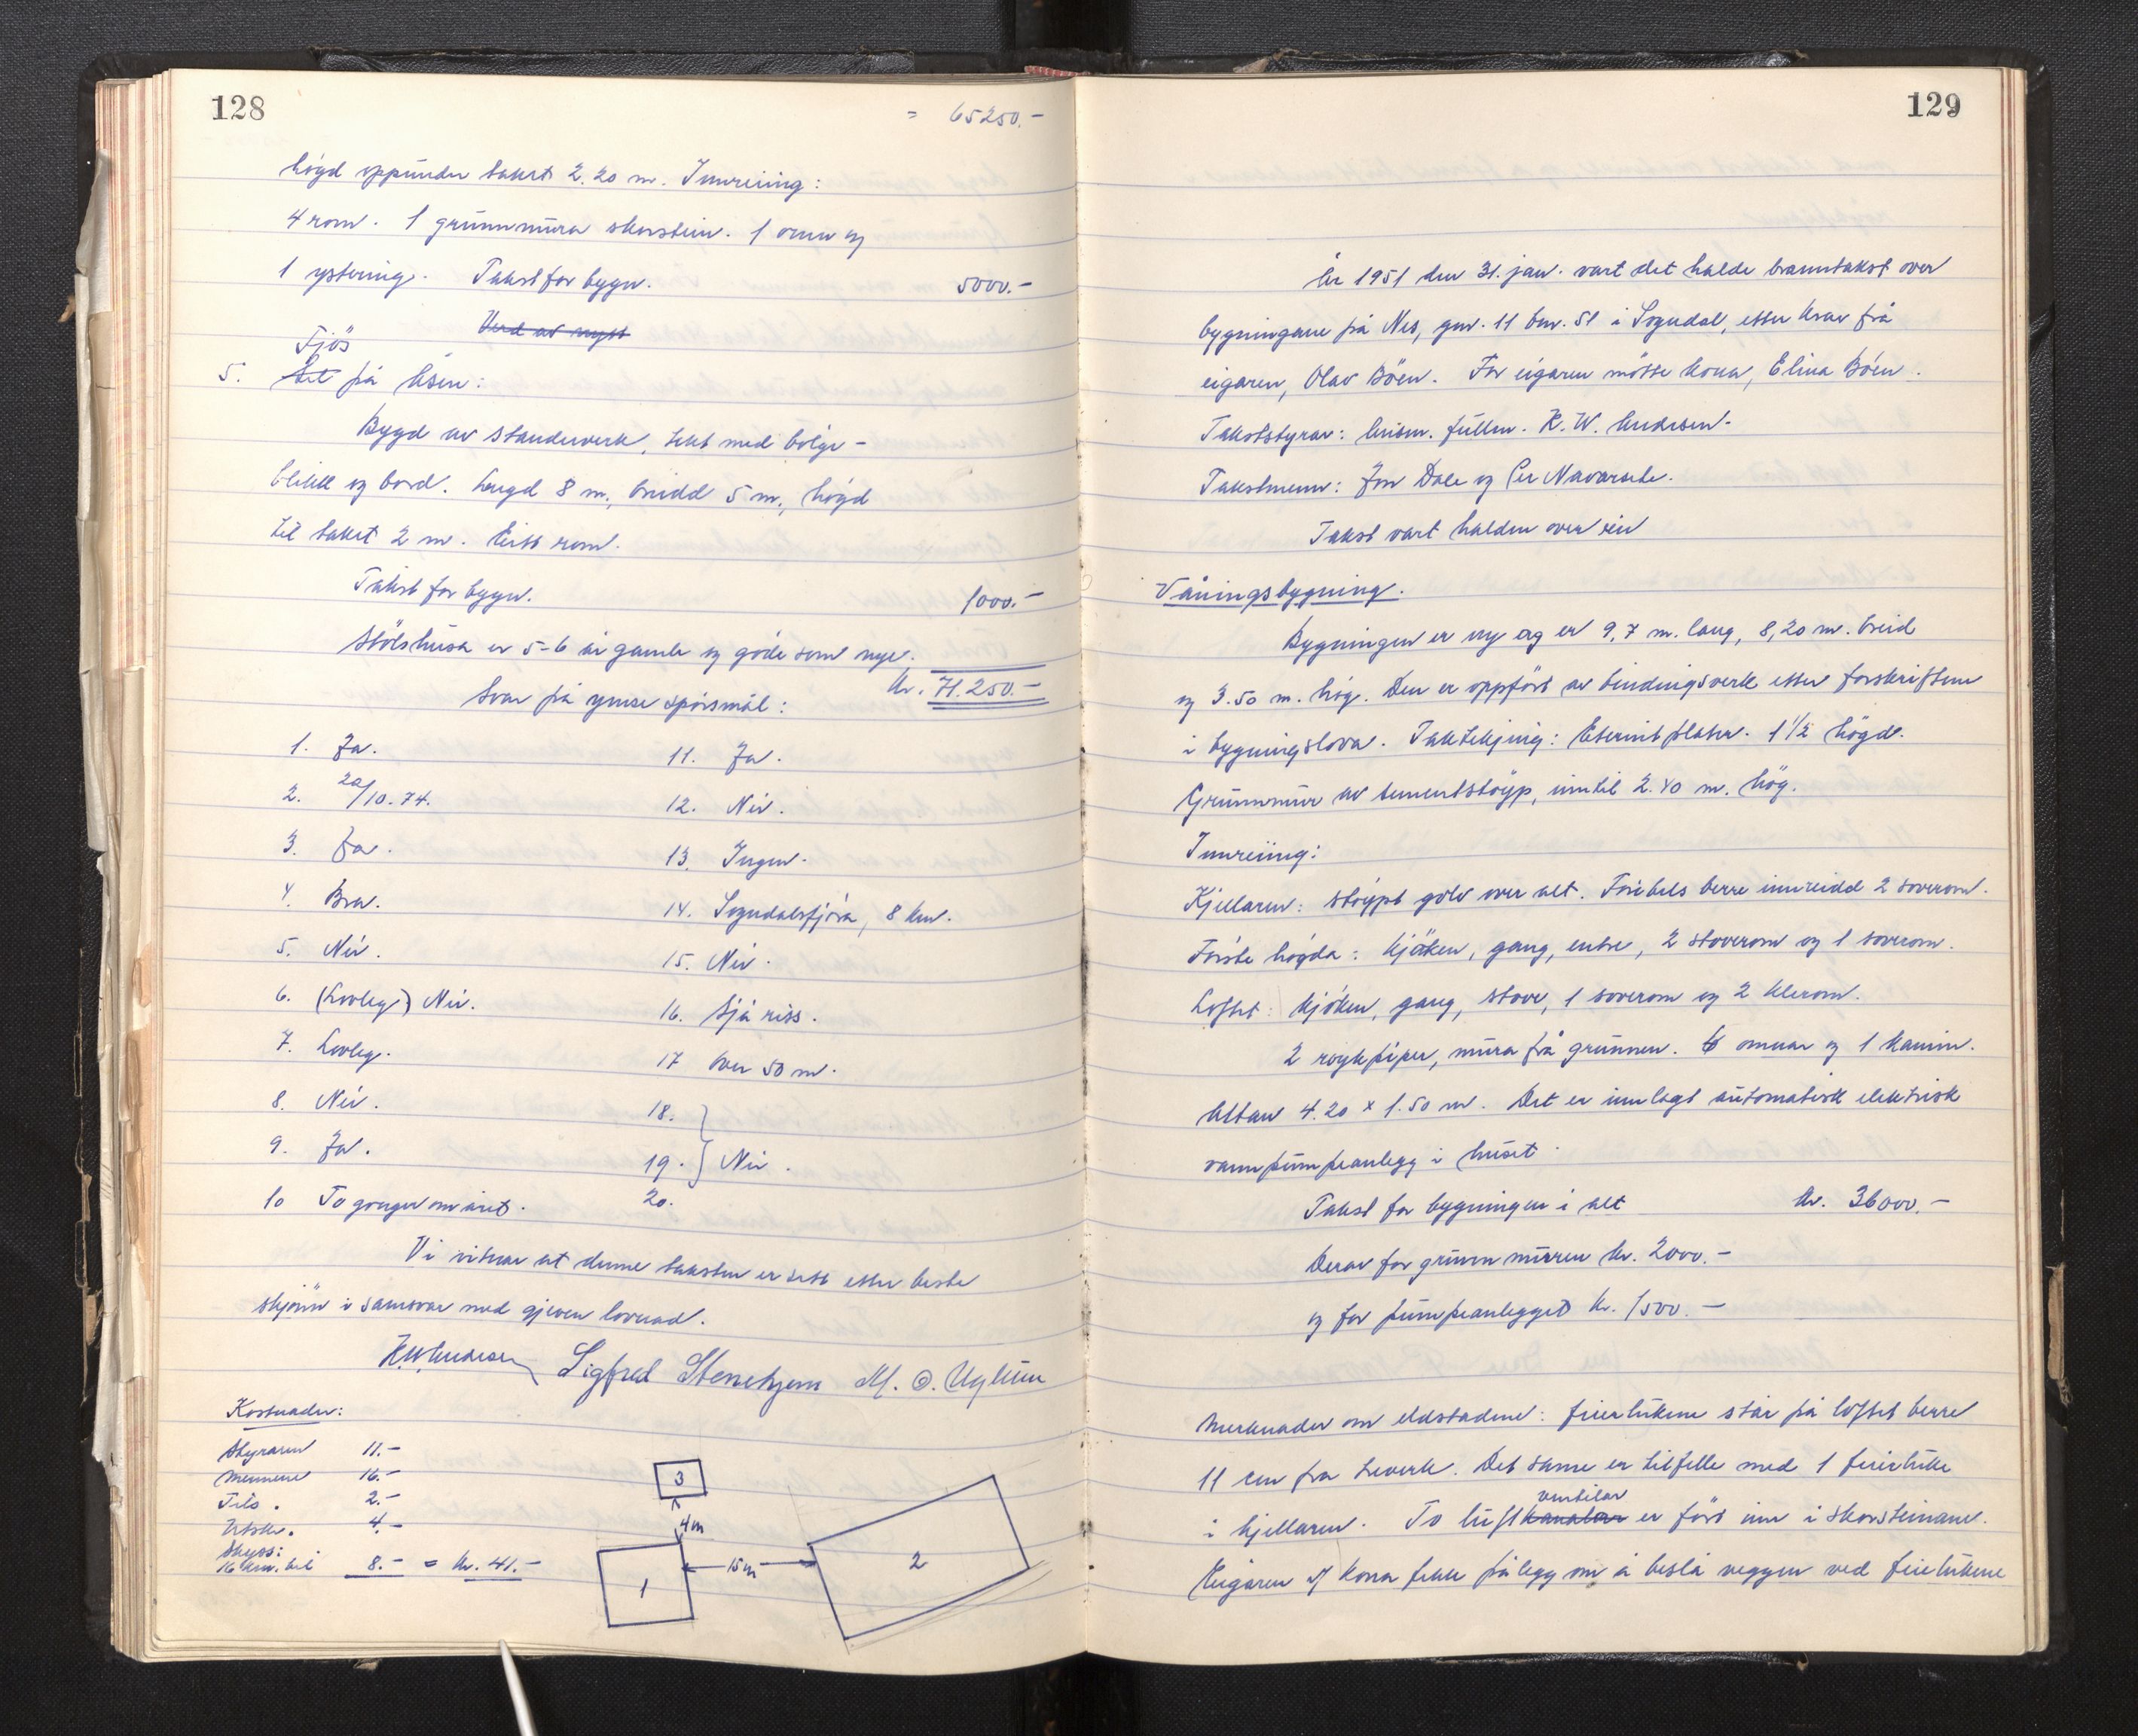 128
= 65250.-
högd oppunder taket 2.20 m. Innreiing:
4 rom. 1 grunnmura skorstein. 1 omn og
1 ystering. Takst for bygn. 5000.-
Verd av nytt
Fjös
5. Sel på åsen:
Bygd av standerverk, tekt med bölgje-
blikk og bord. Lengd 8 m, breidd 5 m., högd
til taket 2 m. Eitt rom.
Takst for bygn. 1000.-
Stölshusa er 5-6 år gamle og gode som nye.
Kr. 71.250.-
Svar på ymse spörsmål:
1. Ja.
2. 20/10.74.
3. Ja.
4. Bra.
5. Nei.
6. (Lovleg) Nei.
7. Lovleg.
8. Nei.
9. Ja.
10 To gonger om året.
11. Ja.
12. Nei.
13. Ingen.
14. Sogndalsfjöra, 8 km.
15. Nei.
16. Sjå riss.
17 Over 50 m.
18.
19. Nei.
20.
Vi vitnar at denne taksten er sett etter beste
skjönn i samsvar med gjeven lovnad.
R.W. Andresen Sigfred Stenehjem M. O. Uglum
Kostnader:
Styraren 11.-
Mennene 16.-
Tils. 2.-
Utskr. 4.-
Skyss:
16 km. bil 8.- = Kr. 41.-
3
4m
1
15m
2
129
År 1951 den 31. jan. vart det halde branntakst over
bygningane på Nes, gnr. 11 bnr. 51 i Sogndal, etter krav frå
eigaren, Olav Böen. For eigaren mötte kona, Elina Böen.
Takststyrar: lensm. fullm. R. W. Andresen.
Takstmenn: Jon Dale og Per Navarsete.
Takst vart halden over ein
Våningsbygning.
Bygningen er ny og er 9,7 m. lang, 8,20 m. breid
og 3.50 m. hög. Den er oppfört av bindingsverk etter forskriftene
i bygningslova. Taktekjing: Eternitplater. 1 1/2 högd.
Grunnmur av sementstöyp, inntil 2.40 m. hög.
Innreiing:
Kjellaren: stöypt golv over alt. Förebels berre innreidd 2 soverom.
Förste högda: kjöken, gang, entre, 2 stoverom og 1 soverom.
Loftet: kjöken, gang, stove, 1 soverom og 2 klerom.
2 röykpiper, mura frå grunnen. 6 omnar og 1 kamin.
Altan 4.20 x 1.50 m. Det er innlagt automatisk elektrisk
vannpumpeanlegg i huset.
Takst for bygningen i alt Kr. 36000.-
Derav for grunnmuren kr. 2000.-
og for pumpeanlegget kr. 1500.-
Merknader om eldstadene: feierlukene står på loftet berre
11 cm fra treverk. Det same er tilfelle med 1 feierluke
ventilar
i kjellaren. To luftkanalar er fört inn i skorsteinane.
Eigaren v/ kona fekk pålegg om å beslå veggen ved feielukene